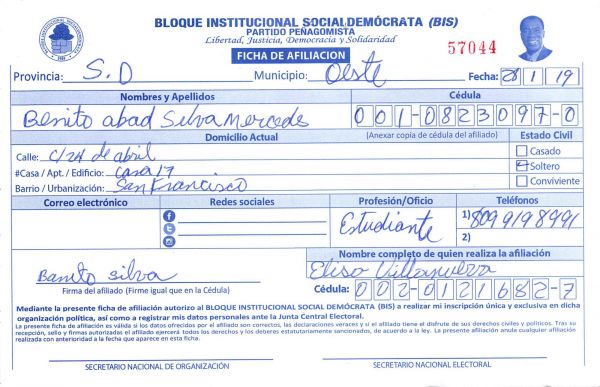 BLOQUE INSTITUCIONAL SOCIALDEMÓCRATA (BIS)
PARTIDO PEÑAGOMISTA
Libertad, Justicia, Democracia y Solidaridad
57044
FICHA DE AFILIACION
Provincia: S.D Municipio: Oeste Fecha: 28/1/19
Nombres y Apellidos Cédula
Benito abad Silva Mercedes 001-0823097-0
Domicilio Actual (Anexar copia de cédula del afiliado) Estado Civil
Calle: C/24 de abril Casado
#Casa / Apt. / Edificio: Casa 17 Soltero
Barrio / Urbanización: San Francisco Conviviente
Correo electrónico Redes sociales Profesión/Oficio Teléfonos
Estudiante 1) 8099198991
2)
Nombre completo de quien realiza la afiliación
Banito silva Elisa Villanueva
Firma del afiliado (Firme igual que en la Cédula) Cédula: 002-0121682-7
Mediante la presente ficha de afiliación autorizo al BLOQUE INSTITUCIONAL SOCIAL DEMÓCRATA (BIS) a realizar mi inscripción única y exclusiva en dicha
organización política, así como a registrar mis datos personales ante la Junta Central Electoral.
La presente ficha de afiliación es válida si los datos ofrecidos por el afiliado son correctos, las declaraciones veraces y si el afiliado tiene el disfrute de sus derechos civiles y políticos. Tras su
recepción, sello y firmas autorizadas el afiliado ejercerá todos los derechos y los deberes estatutariamente sancionados, de acuerdo a la ley. La presente afiliación anula cualquier afiliación
realizada con anterioridad a la fecha que aparece en esta ficha.
SECRETARIO NACIONAL DE ORGANIZACIÓN SECRETARIO NACIONAL ELECTORAL